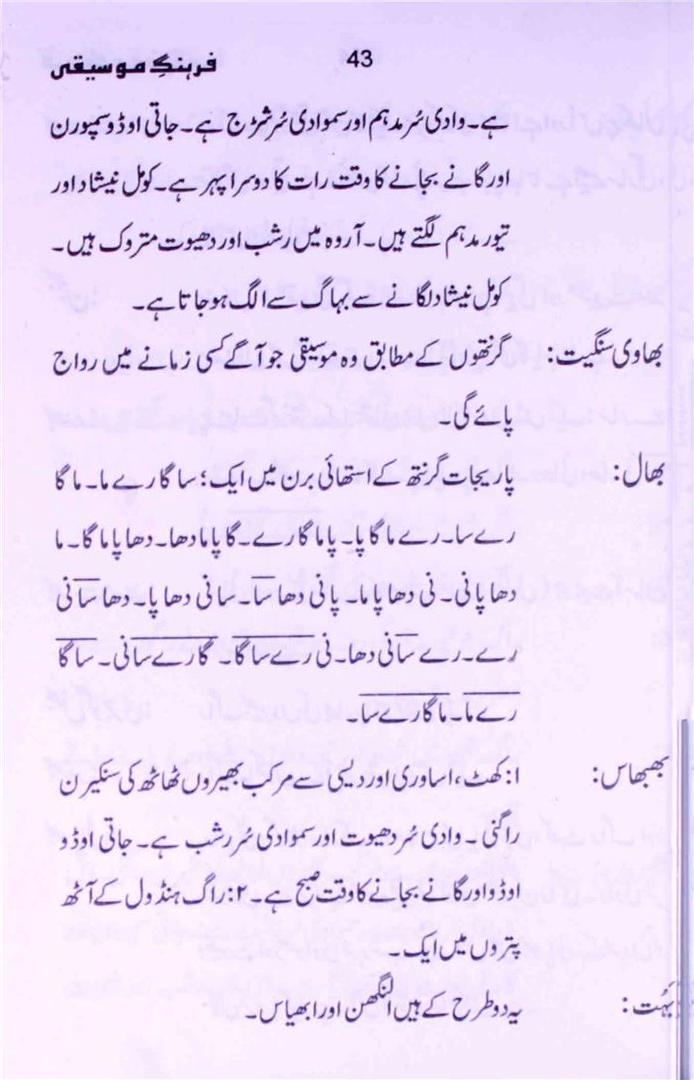 43 فرہنگِ موسیقی
ہے۔ وادی سُر مدہم اور سموادی سُر شروج ہے۔ جاتی اوڈو سمپورن
اور گانے بجانے کا وقت رات کا دوسرا پہر ہے۔ کول نیشاد اور
تیور مدہم لگتے ہیں۔ آروہ میں رشب اور دھیوت متروک ہیں۔
کول نیشاد لگانے سے بہاگ سے الگ ہو جاتا ہے۔
بھاوی سنگیت: گرنتھوں کے مطابق وہ موسیقی جو آگے کسی زمانے میں رواج
پائے گی۔
بھال: پاریجات گرنتھ کے استھائی برن میں ایک: سا گا رے ما۔ ما گا
رے سا۔ رے ما گا پا۔ پا ما گا رے۔ گا پا ما دھا۔ دھا پا ما گا۔ ما
دھا پا نی۔ نی دھا پا ما۔ پا نی دھا سا۔ سا نی دھا پا۔ دھا سا نی
رے۔ رے سا نی دھا۔ نی رے سا گا۔ گا رے سا نی۔ سا گا
رے ما۔ ما گا رے سا۔
بھبھاس: ۱: کھٹ، اساوری اور دیسی سے مرکب بھیروں ٹھاٹھ کی سنکیرن
راگنی۔ وادی سُر دھیوت اور سموادی سُر رشب ہے۔ جاتی اوڈو
اوڈو اور گانے بجانے کا وقت صبح ہے۔ ۲: راگ ہنڈول کے آٹھ
پتروں میں ایک۔
بہُت: یہ دو طرح کے ہیں النگھن اور ابھیاس۔